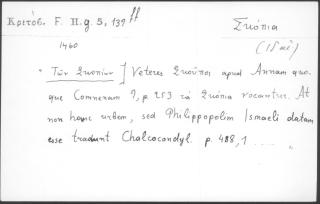 Κριτόβ. F. H. g. 5, 139 ff
Σκόπια
1460
" Τῶν Σκοπίων ] Veteres Σκοῦποι apud Annam quo-
que Comnenam 9, p. 253 τὰ Σκόπια vocantur. At
non hanc urbem, sed Philippopolim Ismaeli datam
esse tradunt Chalcocondyl. p. 488,1 .... "